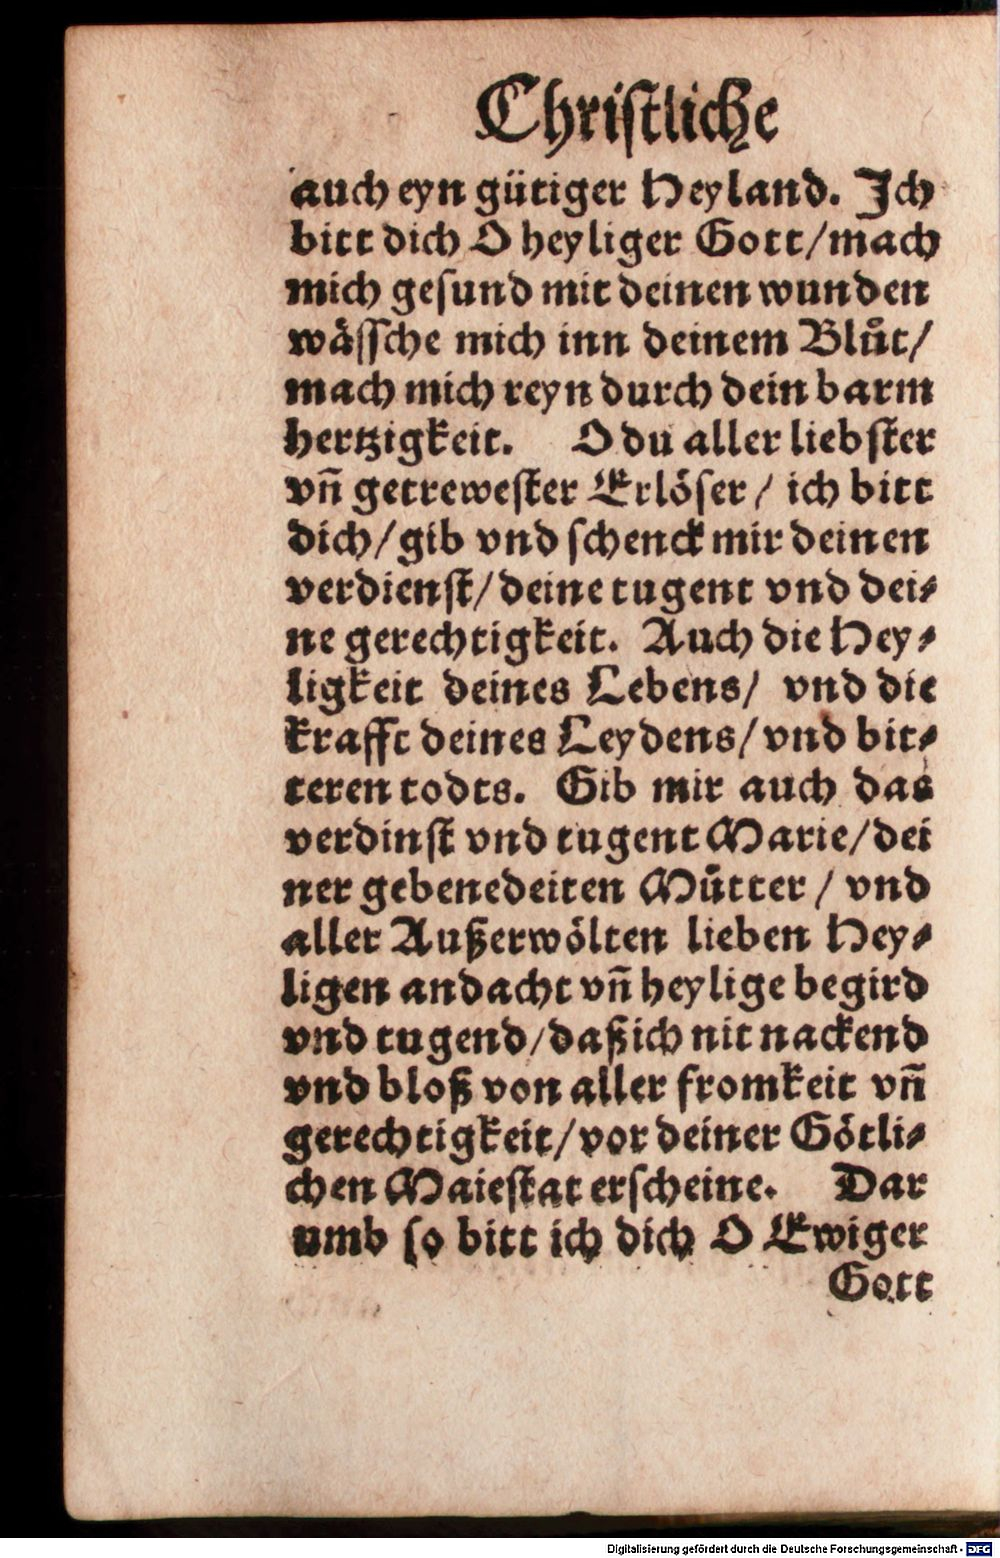 Chriſtliche
auch eyn gütiger Heyland. Ich
bitt dich O heyliger Gott/mach
mich geſund mit deinen wunden
wåſſche mich inn deinem Blůt/
mach mich reyn durch dein barm
hertzigkeit. O du aller liebſter
vñ getreweſter Erlöſer/ ich bitt
dich/gib vnd ſchenck mir deinen
verdienſt/deine tugent vnd dei⸗
ne gerechtigkeit. Auch die Hey⸗
ligkeit deines Lebens/ vnd die
krafft deines Leydens/vnd bit⸗
teren todts. Gib mir auch das
verdinſt vnd tugent Marie/dei
ner gebenedeiten Můtter / vnd
aller Außerwölten lieben Hey⸗
ligen andacht vñ heylige begird
vnd tugend/daß ich nit nackend
vnd bloß von aller fromkeit vñ
gerechtigkeit/vor deiner Götli⸗
chen Maieſtat erſcheine. Dar
umb ſo bitt ich dich O Ewiger
Gott
Digitalisierung gefördert durch die Deutsche Forschungsgemeinschaft - DFG